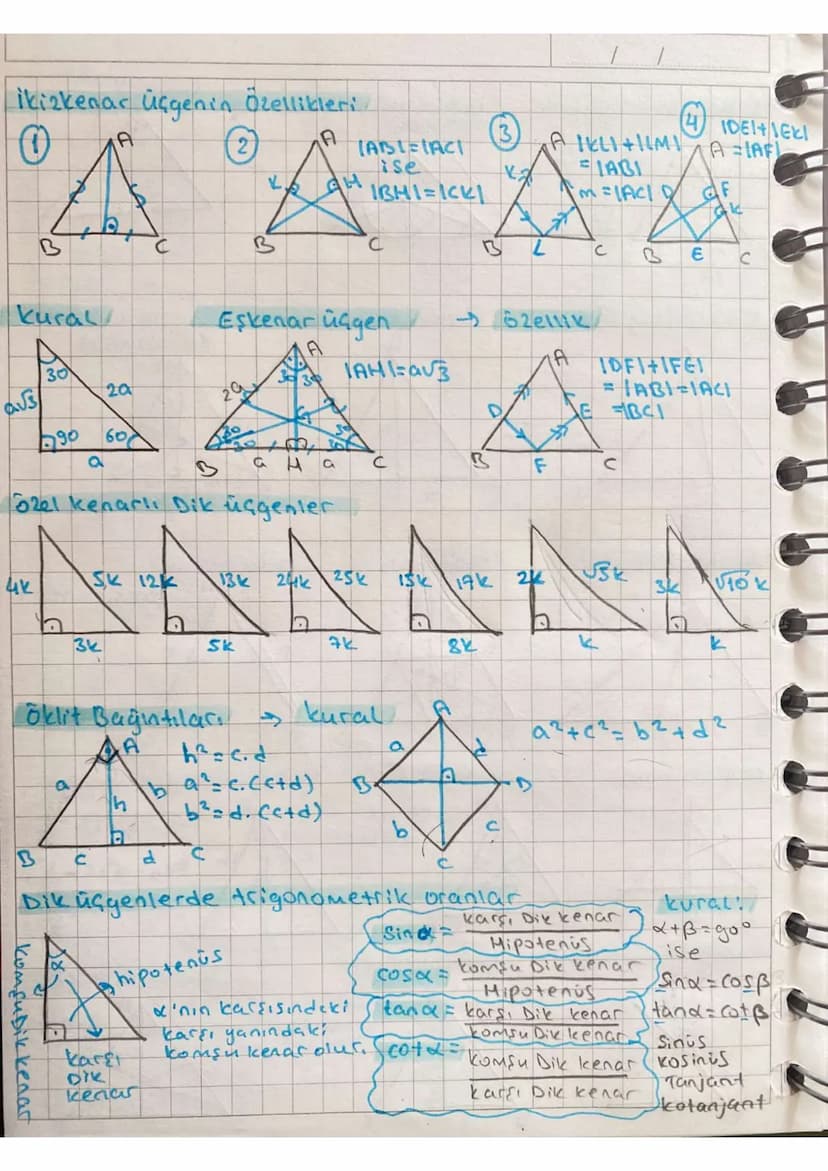 / /
İkizkenar üçgenin Özellikleri
1
A
B
C
2
A
K
H
B
C
|AB|=|AC|
ise
|BH|=|CK|
3
A
K
B
L
C
|KL|+|LM|
=|AB|
m=|AC|
4
|DE|+|EK|
A =|AF|
D
F
K
B
E
C
Kural
30
a√3
2a
90
60
a
Eşkenar üçgen
A
30 30
2a
G
30
30
30
30
B
a
H
a
C
|AH|=a√3
→ özellik
A
D
E
B
F
C
|DF|+|FE|
=|AB|=|AC|
=|BC|
Özel Kenarlı Dik üçgenler
4k 5k 12k 13k 24k 25k 15k 17k 2k √5k 3k √10k
3k 5k 7k 8k k k
Öklit Bağıntıları → Kural
A
a
h
b
B
c
d
C
h²=c.d
a²=c.(c+d)
b²=d.(c+d)
A
a
d
B
D
b
c
C
a²+c²=b²+d²
Dik üçgenlerde trigonometrik oranlar
Komşu Dik kenar
α
hipotenüs
karşı
Dik
kenar
α'nın karşısındaki
karşı yanındaki
komşu kenar olur.
sinα = Karşı Dik kenar
Hipotenüs
cosα = komşu Dik kenar
Hipotenüs
tanα = karşı Dik kenar
komşu Dik kenar
cotα = komşu Dik kenar
karşı Dik kenar
kural:
α+β=90°
ise
sinα=cosβ
tanα=cotβ
sinüs
kosinüs
Tanjant
kotanjant